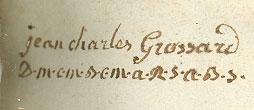 jean charles Grossard
D·m·e·m·B·e·m·a·R·S·A·B·S·S·